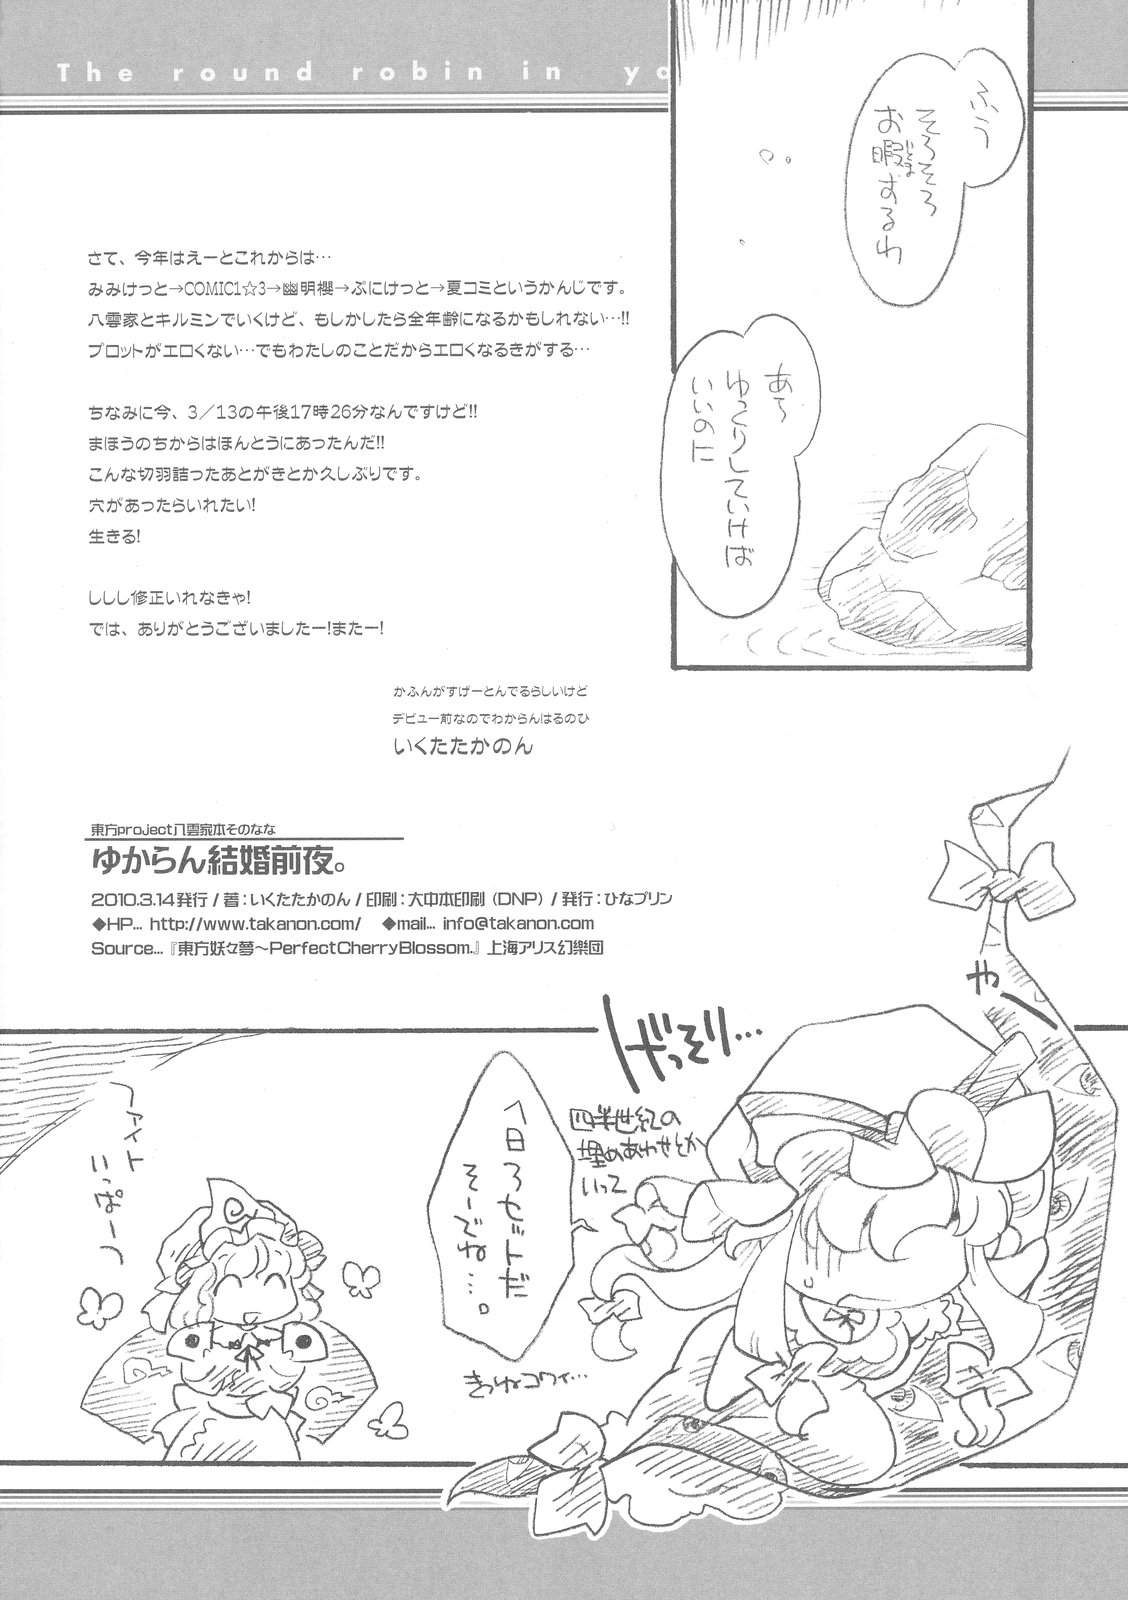 The round robin in ya
ふう
そろそろ
お暇するわ
いとま
あら
ゆっくりしていけば
いいのに
さて、今年はえーとこれからは…
みみけっと→COMIC1☆3→幽明櫻→ぷにけっと→夏コミというかんじです。
八雲家とキルミンでいくけど、もしかしたら全年齢になるかもしれない…!!
プロットがエロくない…でもわたしのことだからエロくなるきがする…
ちなみに今、3/13の午後17時26分なんですけど!!
まほうのちからはほんとうにあったんだ!!
こんな切羽詰ったあとがきとか久しぶりです。
穴があったらいれたい!
生きる!
ししし修正いれなきゃ!
では、ありがとうございましたー!またー!
かふんがすげーとんでるらしいけど
デビュー前なのでわからんはるのひ
いくたたかのん
東方project八雲家本そのなな
ゆからん結婚前夜。
2010.3.14発行 / 著:いくたたかのん / 印刷:大中本印刷(DNP) / 発行:ひなプリン
◆HP... http://www.takanon.com/ ◆mail... info@takanon.com
Source...『東方妖々夢～PerfectCherryBlossom.』上海アリス幻樂団
げっそり…
四半世紀の
埋めあわせとか
いって
1日3セットだ
そーでね…。
きつねコワイ…
ファイト
いっぱーつ